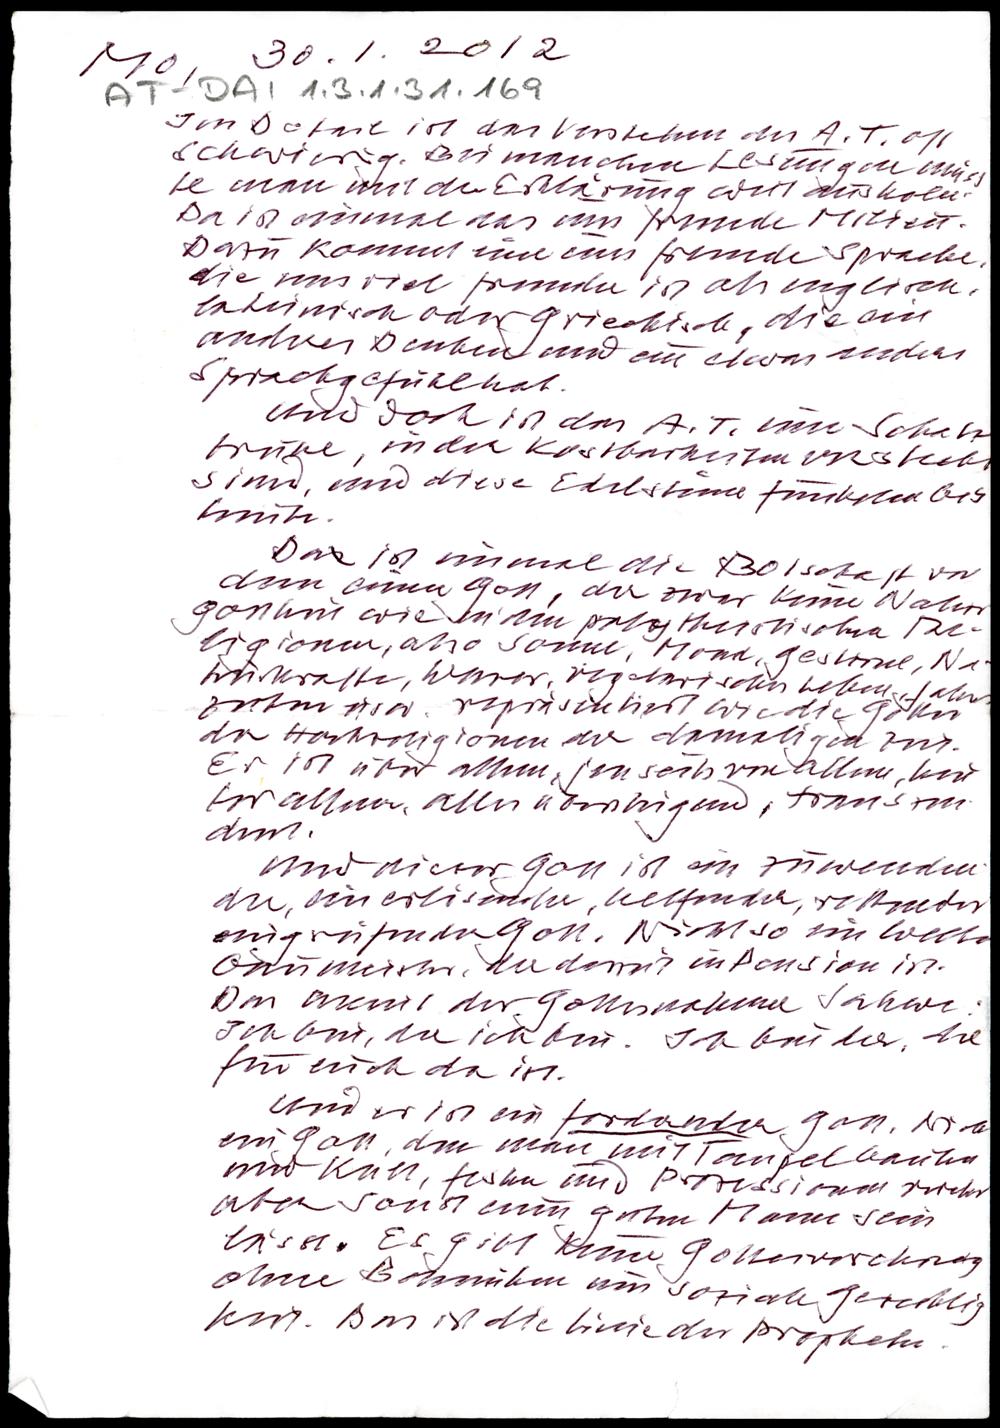 Mo, 30.1.2012
AT-DAI 1.3.1.31.169
Im Detail ist das Verstehen des A.T. oft
schwierig. Bei manchen Lesungen müss
te man mit der Erklärung weit ausholen.
Da ist einmal das uns fremde Milieu.
Dazu kommt eine uns fremde Sprache,
die uns viel fremder ist als englisch,
lateinisch oder Griechisch, die ein
andres Denken und ein etwas anderes
Sprachgefühl hat.
Und doch ist das A.T. eine Schatz
truhe, in der Kostbarkeiten versteckt
sind, und diese Edelsteine funkeln bis
heute.
Das ist einmal die Botschaft von
dem einen Gott, der zwar keine Natur
gottheit wie in den polytheistischen Re-
ligionen, also Sonne, Mond, Gestirne, Na-
turkräfte, Wasser, vegetarisches Leben, Jahres
zeiten usw. repräsentiert wie die Götter
der Hochreligionen der damaligen Zeit.
Er ist über allem, jenseits von allem, hin
ter allem, alles übersteigend, transzen
dent.
Und dieser Gott ist ein zuwenden
der, ein erlösender, helfender, rettender
eingreifender Gott. Nicht so ein Welt
baumeister, der derzeit in Pension ist.
Das meint der Gottesname Jahwe:
Ich bin, der ich bin. Ich bin der, der
für euch da ist.
Und er ist ein fordernder Gott. Nicht
ein Gott, den man mit Tempelbauten
und Kult, Festen und Prozessionen
aber sonst einen guten Mann sein
lässt. Es gibt keine Gottesverehrung
ohne Bemühen um soziale Gerechtig
keit. Das ist die Linie der Propheten.